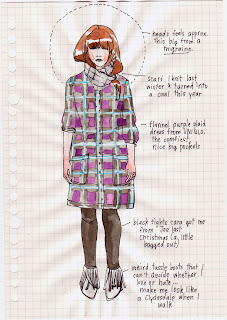 Head feels approx.
this big from a
migraine.
scarf I knit last
winter & turned into
a cowl this year
flannel purple plaid
dress from UNIQLO.
the comfiest,
nice big pockets
black tights Cara got me
from Joe last
Christmas (a little
bagged out)
weird tassle boots that I
can't decide whether I
love or hate...
make me look like
a Clydesdale when I
walk